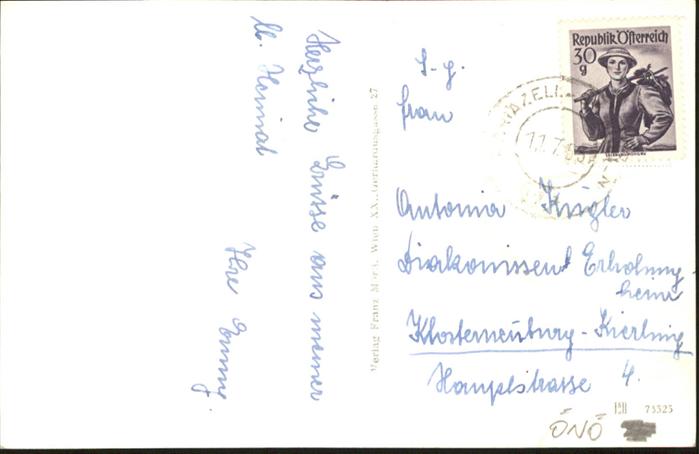 Herzliche Grüsse aus meiner
lb. Heimat
Ihre Emmy.
Verlag Franz Mörtl, Wien XX., Gerhardusgasse 27
Republik Österreich
30
g
MARIAZELL
S. g.
Frau
Antonia Kugler
Diakonissen Erholungs
heim
Klosterneuburg-Kierling
Hauptstrasse 4.
73323
ÖNÖ